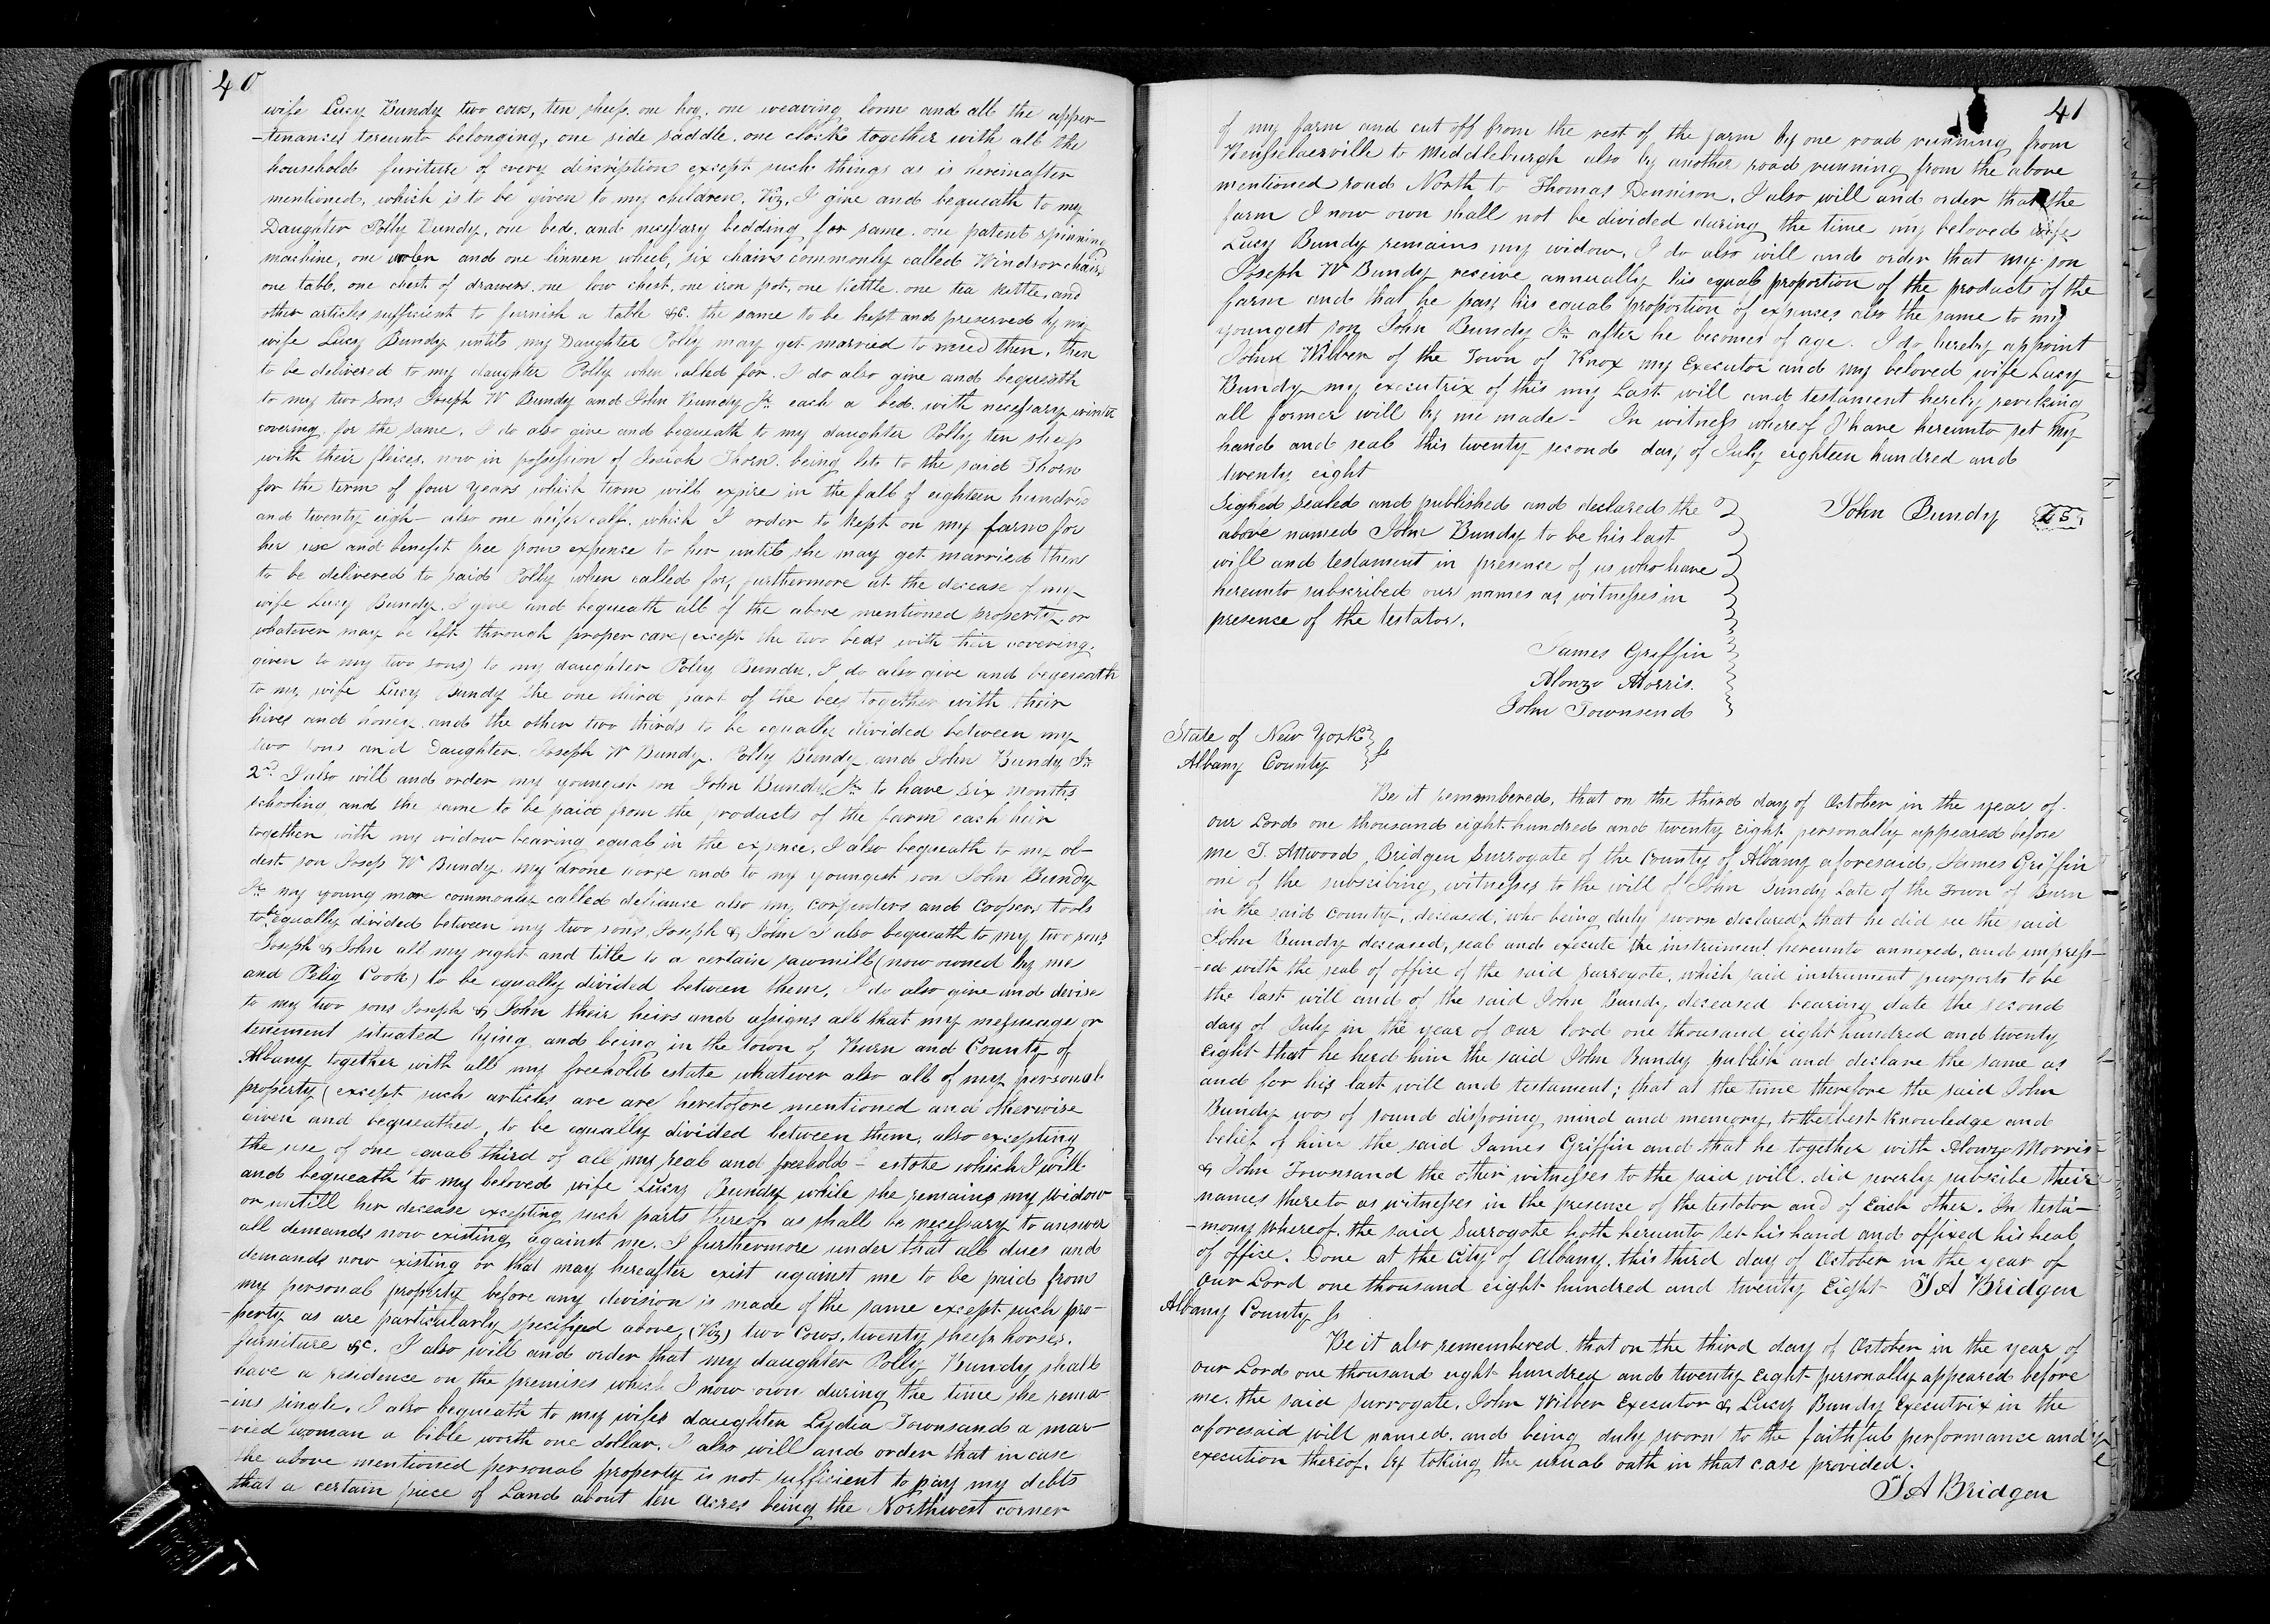 40
wife Lucy Bundy two cows, ten sheep. one hog. one weaving loom and all the apper-
-tenances tereunto belonging, one side saddle. one clock together with all the
household furniture of every discription except such things as is hereinafter
mentioned, which is to be given to my children. Viz, I give and bequeath to my
Daughter Polly Bundy, one bed. and necessary bedding for same. one patent spinning
machine, one wolen and one linnen wheel, six chairs commonly called Windsor chairs
one table. one chest of drawers. one low chest. one iron pot, one kettle. one tea kettle, and
other articles sufficient to furnish a table &c. the same to be kept and preserved by my
wife Lucy Bundy until my Daughter Polly may get married to need then, then
to be delivered to my daughter Polly when called for. I do also give and bequeath
to my two sons Joseph W Bundy and John Bundy Jr. each a bed with necessary winter
covering for the same. I do also give and bequeath to my daughter Polly ten sheep
with their fleices. now in possession of Josiah Thorn. being let to the said Thorn
for the term of four years which term will expire in the fall of eighteen hundred
and twenty eigh- also one heifer calf. which I order to kept on my farm for
her use and benefit free from expense to her until she may get married then
to be delivered to said Polly when called for, furthermore at the decease of my
wife Lucy Bundy. I give and bequeath all of the above mentioned property or
whatever may be left through proper care (except the two beds with their covering.
given to my two sons) to my daughter Polly Bundy. I do also give and begeseath
to my wife Lucy Bundy the one third part of the bees together with their
hives and honey. and the other two thirds to be equally divided between my
two sons and Daughter. Joseph W Bundy. Polly Bundy and John Bundy Jr.
2d. I also will and order my youngest son John Bundy Jr. to have six months
schooling and the same to be paid from the products of the farm each heir
together with my widow bearing equal in the expence. I also bequeath to my ol-
dest son Joseph W Bundy my drone horse and to my youngest son John Bundy
Jr. my young mare commonly called defiance also my carpenters and Coopers tools
to be equally divided between my two sons, Joseph & John I also bequeath to my two sons
Joseph & John all my right and title to a certain sawmill (now owned by me
and Pelig Cook) to be equally divided between them. I do also give and devise
to my two sons Joseph & John their heirs and assigns all that my messuage or
tenement situated lying and being in the town of Burn and County of
Albany together with all my freehold estate whatever also all of my personal
property (except such articles are are heretofore mentioned and otherwise
given and bequeathed, to be equally divided between them, also excepting
the use of one equal third of all my real and freehold - estate which I will
and bequeath to my beloved wife Lucy Bundy while she remains my widow
or untill her decease excepting such parts thereof as shall be necessary to answer
all demands now existing against me. I furthermore under that all dues and
demands now existing or that may hereafter exist against me to be paid from
my personal property before any division is made of the same except such pro-
-perty as are particularly specified above, (Viz) two Cows. twenty sheep horses.
furniture &c. I also will and order that my daughter Polly Bundy shall
have a residence on the premises which I now own during the time she rema-
-ins single. I also bequeath to my wifes daughter Lydia Townsand a mar-
-ried woman a bible worth one dollar. I also will and order that in case
the above mentioned personal property is not sufficient to pay my debts
that a certain piece of Land about ten Acres being the Northwest corner
41
of my farm and cut off from the rest of the farm by one road running from
Rensselaerville to Middleburgh also by another road running from the above
mentioned road North to Thomas Dennison. I also will and order that the
farm I now own shall not be divided during the time my beloved wife
Lucy Bundy remains my widow. I do also will and order that my son
Joseph W Bundy receive annually his equal proportion of the products of the
farm and that he pay his equal proportion of expenses also the same to my
youngest son John Bundy Jr. after he becomes of age. I do hereby appoint
John Wilber of the Town of Knox my Executor and my beloved wife Lucy
Bundy my executrix of this my Last will and testament hereby reveking
all former will by me made - In witness whereof I have hereunto set my
hand and seal this twenty second day of July eighteen hundred and
twenty eight
Sighed sealed and published and declared the
above named John Bundy to be his last
will and testament in presence of us who have
hereunto subscribed our names as witnesses in
presence of the testator.
John Bundy L S
James Griffin
Alonzo Morris.
John Townsend
State of New York
Albany County ss
Be it remembered, that on the third day of October in the year of
our Lord one thousand eight hundred and twenty Eight personally appeared before
me T. Attwood Bridgen Surrogate of the County of Albany aforesaid, James Griffin
one of the subscribing witnesses to the will of John Bundy Late of the Town of Burn
in the said County, deceased, who being duly sworn declared, that he did see the said
John Bundy deceased, seal and execute the instrument hereunto annexed, and impress-
-ed with the seal of office of the said surrogate, which said instrument purports to be
the last will and of the said John Bundy deceased bearing date the second
day of July in the year of our lord one thousand eight hundred and twenty
Eight that he herd him the said John Bundy publish and declare the same as
and for his last will and testament; that at the time therefore the said John
Bundy was of sound disposing mind and memory, to the best knowledge and
belief of him the said James Griffin and that he together with Alonzo Morris
& John Townsand the other witnesses to the said will. did severly subscibe their
names thereto as witnesses in the presence of the testator and of Each other. In testi-
-mony whereof. the said Surrogate hath hereunto set his hand and affixed his seal
of office. Done at the City of Albany. this third day of October in the year of
our Lord one thousand eight hundred and twenty Eight T A Bridgen
Albany County ss
Be it also remembered. that on the third day of October in the year of
our Lord one thousand eight hundred and twenty Eight personally appeared before
me. the said surrogate. John Wilber Executor & Lucy Bundy Executrix in the
aforesaid will named. and being duly sworn to the faithful performance and
execution thereof. by taking the usual oath in that case provided.
T A Bridgen